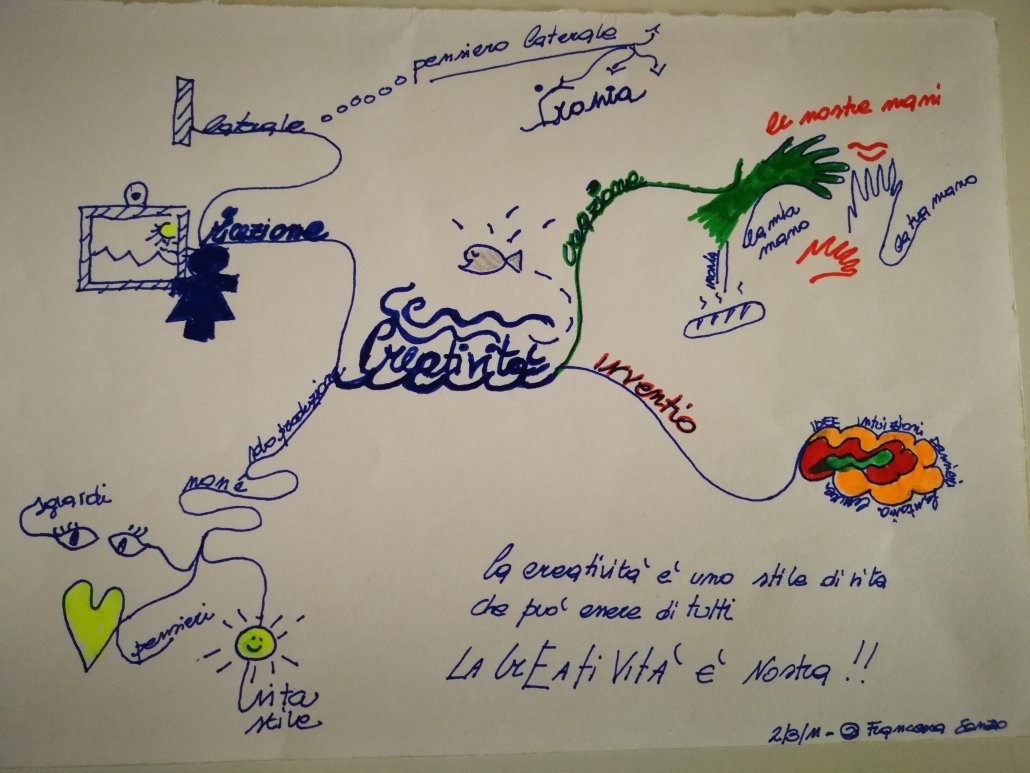 pensiero laterale
Ironia
laterale
le nostre mani
la mia
mano
la tua mano
creazione
Creatività
Inventio
solo produzione
non è
sguardi
IDEE intuizioni pensieri
pensieri
vita
stile
La creatività è uno stile di vita
che può essere di tutti
LA CrEAtiVITA' E' Nostra !!
2/3/11 - © Francesca Sanzo